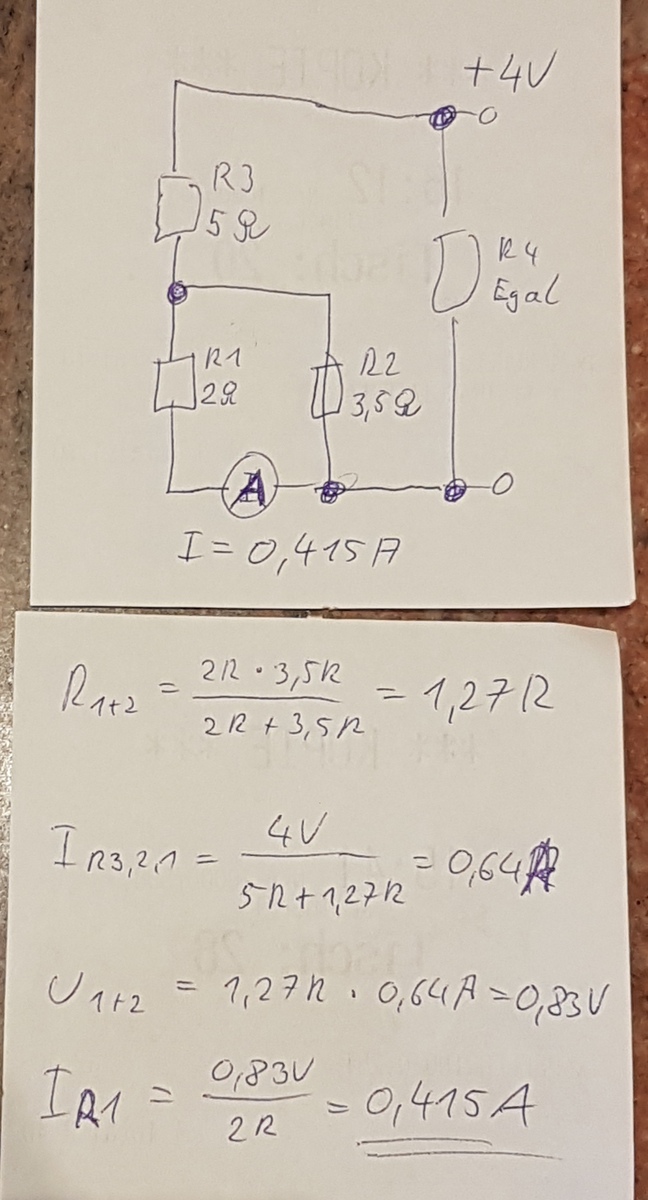 +4V
R3
5Ω
R4
Egal
R1
2Ω
R2
3,5Ω
A
I = 0,415A
R1+2 = 2R · 3,5R / 2R + 3,5R = 1,27R
I R3,2,1 = 4V / 5R + 1,27R = 0,64A
U1+2 = 1,27R · 0,64A = 0,83V
I R1 = 0,83V / 2R = 0,415A